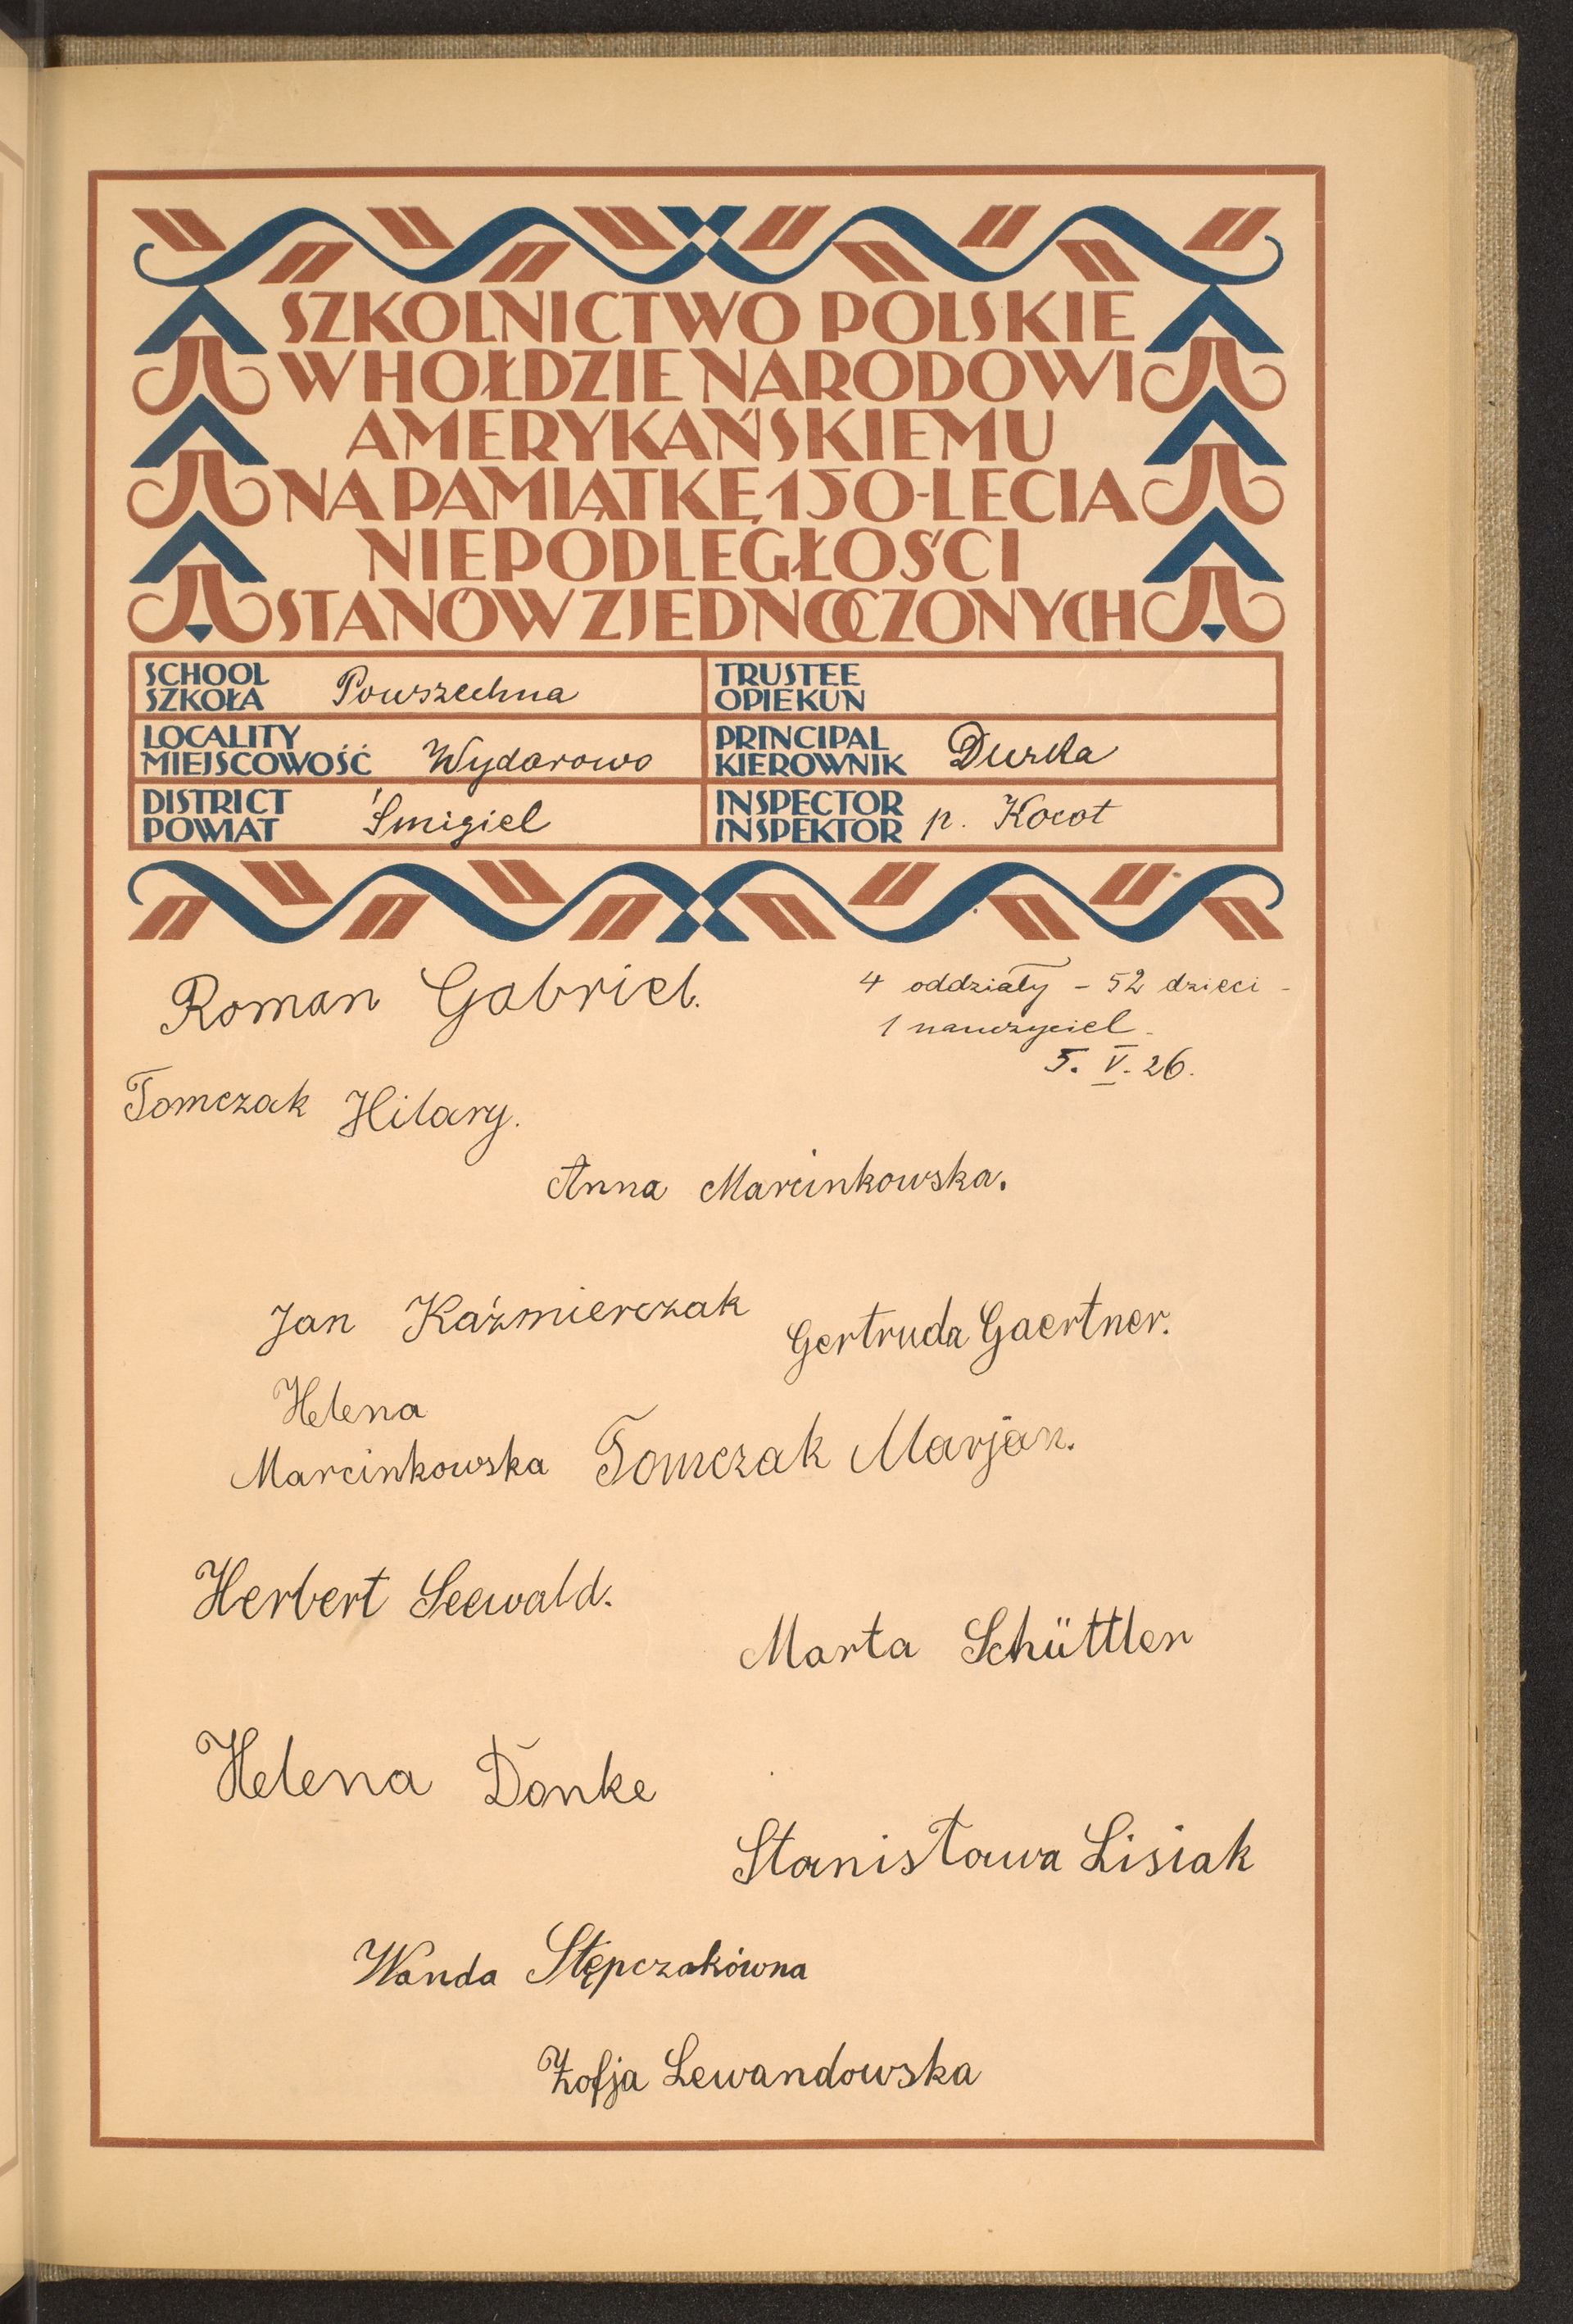 SZKOLNICTWO POLSKIE
W HOŁDZIE NARODOWI
AMERYKAŃSKIEMU
NA PAMIĄTKĘ 150-LECIA
NIEPODLEGŁOŚCI
STANÓW ZJEDNOCZONYCH
SCHOOL
SZKOŁA Powszechna
TRUSTEE
OPIEKUN
LOCALITY
MIEJSCOWOŚĆ Wydorowo
PRINCIPAL
KIEROWNIK Durka
DISTRICT
POWIAT Śmigiel
INSPECTOR
INSPEKTOR p. Kocot
Roman Gabriel.
4 oddziały - 52 dzieci -
1 nauczyciel -
5. V. 26.
Tomczak Hilary.
Anna Marcinkowska.
Jan Kaźmierczak
Gertruda Gaertner.
Helena
Marcinkowska
Tomczak Marjan.
Herbert Seewald.
Marta Schüttler
Helena Donke
Stanisława Lisiak
Wanda Stępczakówna
Zofja Lewandowska